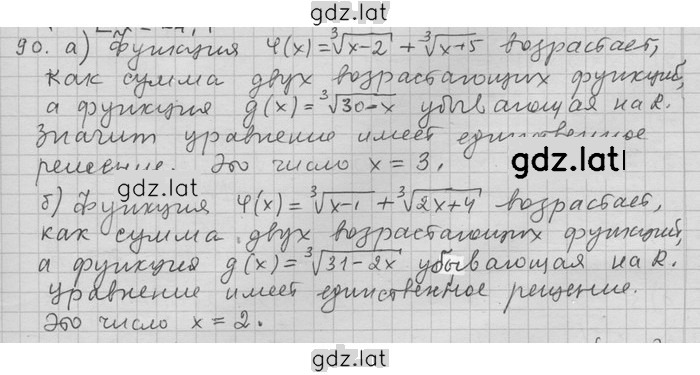 gdz.lat
90. а) Функция φ(x) = ∛(x-2) + ∛(x+5) возрастает,
как сумма двух возрастающих функций,
а функция g(x) = ∛(30-x) убывающая на R.
Значит уравнение имеет единственное
решение. Это число x = 3.
gdz.lat
gdz.lat
б) Функция φ(x) = ∛(x-1) + ∛(2x+4) возрастает,
как сумма двух возрастающих функций,
а функция g(x) = ∛(31-2x) убывающая на R.
Уравнение имеет единственное решение.
Это число x = 2.
gdz.lat